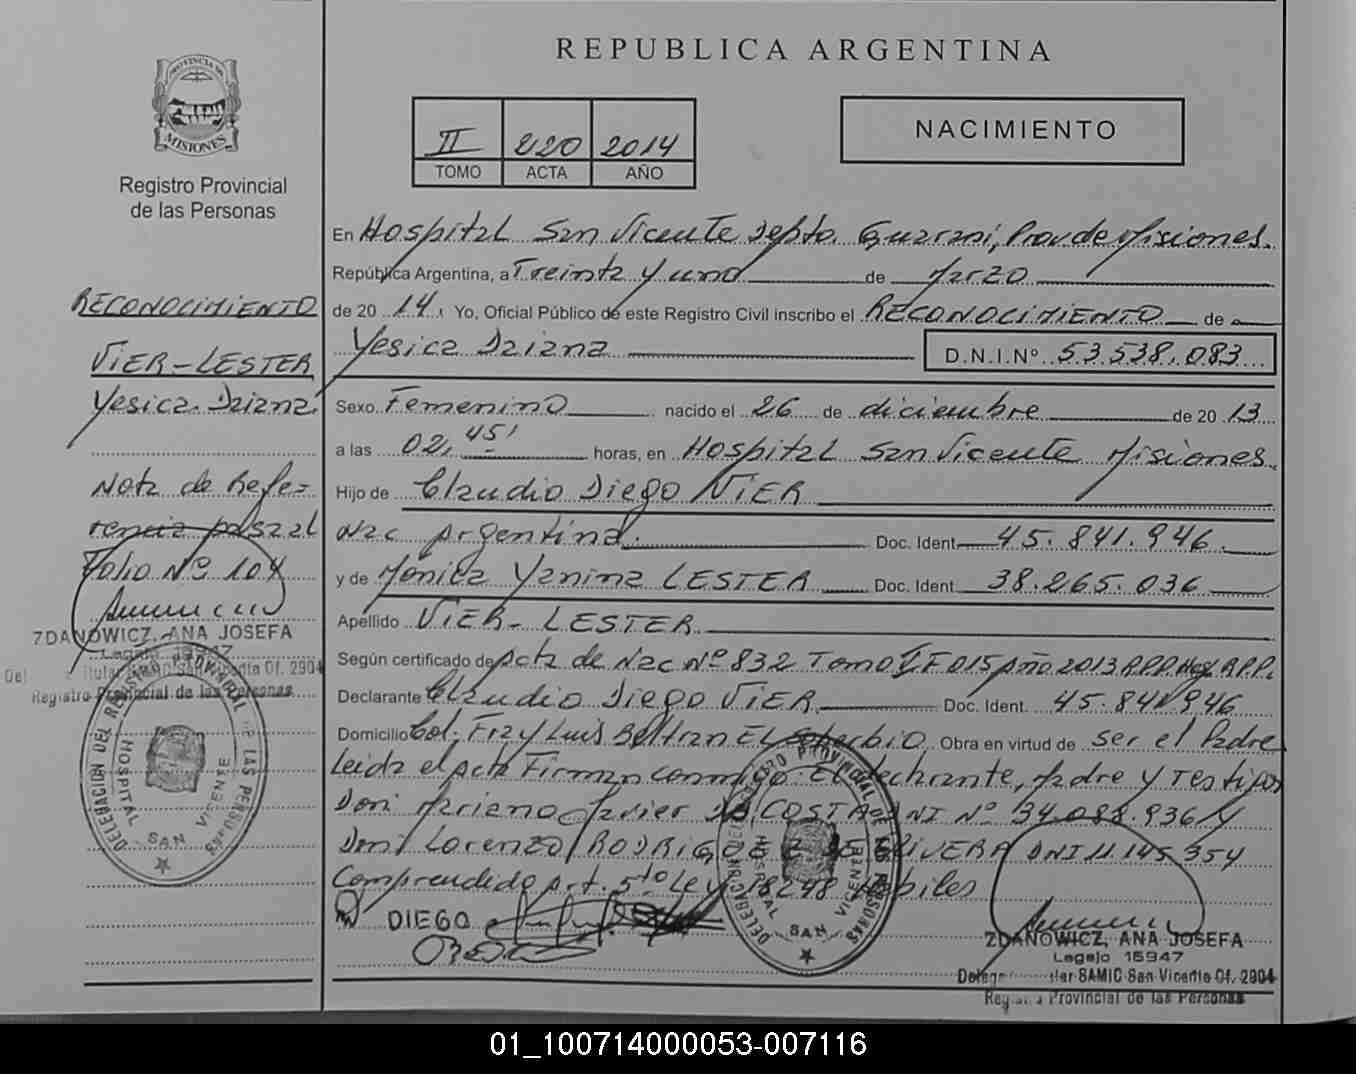 PROVINCIA DE
MISIONES
Registro Provincial
de las Personas
RECONOCIMIENTO
VIER-LESTER
Yesica Daiana.
Nota de Refe-
rencia pasaal
Folio Nº 104
ZDANOWICZ, ANA JOSEFA
Legajo 15947
Titular San Vicente Of. 2904
Registro Provincial de las Personas
DELEGACION DEL REGISTRO PROVINCIAL DE LAS PERSONAS
HOSPITAL SAN VICENTE
REPUBLICA ARGENTINA
II 220 2014
TOMO ACTA AÑO
NACIMIENTO
En Hospital San Vicente Depto. Guarani, Prov de Misiones.
República Argentina, a Treinta y uno de Marzo
de 20 14. Yo, Oficial Público de este Registro Civil inscribo el RECONOCIMIENTO de
Yesica Daiana D.N.I.Nº 53.538.083
Sexo Femenino nacido el 26 de diciembre de 20 13
a las 02,45' horas, en Hospital San Vicente Misiones.
Hijo de Claudio Diego VIER
Nac Argentina. Doc. Ident. 45.841.946.
y de Mónica Yanina LESTER Doc. Ident. 38.265.036
Apellido VIER-LESTER
Según certificado de Acta de Nac Nº 832 Tomo I F 015 Año 2013 R.P.P. Hoy R.P.P.
Declarante Claudio Diego VIER Doc. Ident. 45.841.946
Domicilio Col. Fray Luis Beltran El Soberbio Obra en virtud de ser el Padre
Leida el acta Firman conmigo El declarante, Madre y Testigos
Don Mariano Javier DA COSTA DNI Nº 34.088.936 y
Don Lorenzo RODRIGUEZ DE OLIVERA DNI 11.145.354
Comprendido Art. 5to Ley 18248 Habiles
DIEGO
DELEGACION DEL REGISTRO PROVINCIAL DE LAS PERSONAS
HOSPITAL SAN VICENTE
ZDANOWICZ, ANA JOSEFA
Legajo 15947
SAMIC San Vicente Of. 2904
Provincial de las Personas
01_100714000053-007116